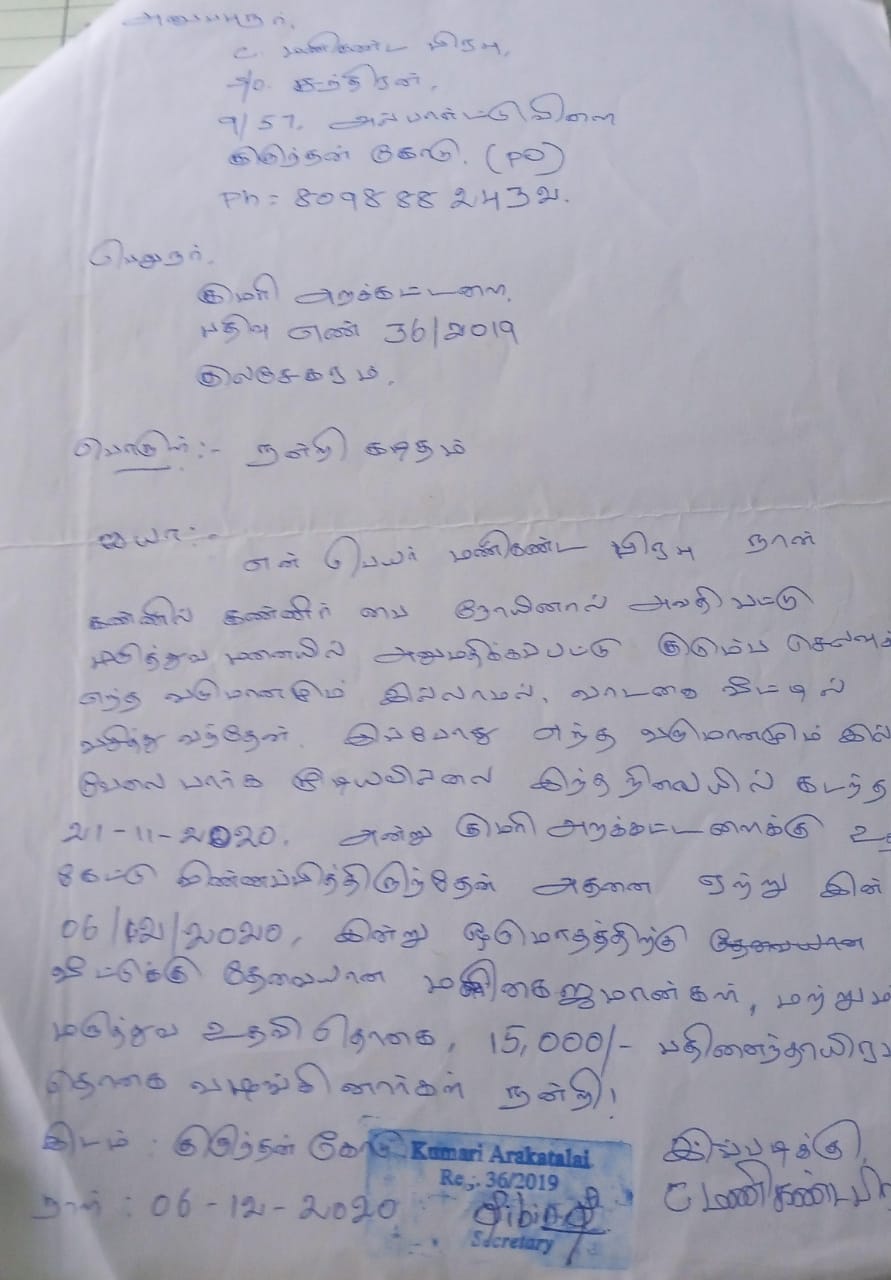 அனுப்புநர்.
C. மணிகண்ட பிரபு,
S/o. சந்திரன்,
9/57,
குருந்தன் கோடு. (PO)
Ph = 809888 2432.
பெறுநர்.
குமரி அறக்கட்டளை,
பதிவு எண் 36/2019
குலசேகரம்.
பொருள் :- நன்றி கடிதம்
ஐயா :-
என் பெயர் மணிகண்ட பிரபு நான்
கண்ணில் கண்ணீர் பை நோயினால் அவதி பட்டு
மருத்துவ மனையில் அனுமதிக்கப்பட்டு குடும்ப
எந்த வருமானமும் இல்லாமல், வாடகை வீட்டில்
வசித்து வந்தேன். இப்போது எந்த வருமானமும்
வேலை பார்க முடியவில்லை இந்த நிலையில் கடந்த
21-11-2020. அன்று குமரி அறக்கட்டளைக்கு
கேட்டு விண்ணப்பித்திருந்தேன் அதனை ஏற்று இன்
06/12/2020, இன்று ஒருமாதத்திற்கு தேவையான
வீட்டுக்கு தேவையான மளிகைஜமான்கள், மற்றும்
மருத்துவ உதவி தொகை, 15,000/- பதினைந்தாயிரம்
தொகை வழங்கினார்கள் நன்றி!
இடம் : குருந்தன் கோடு Kumari Arakatalai இப்படிக்கு
Re,. 36/2019 C மணிகண்டபி
நாள் : 06-12-2020
Secretary